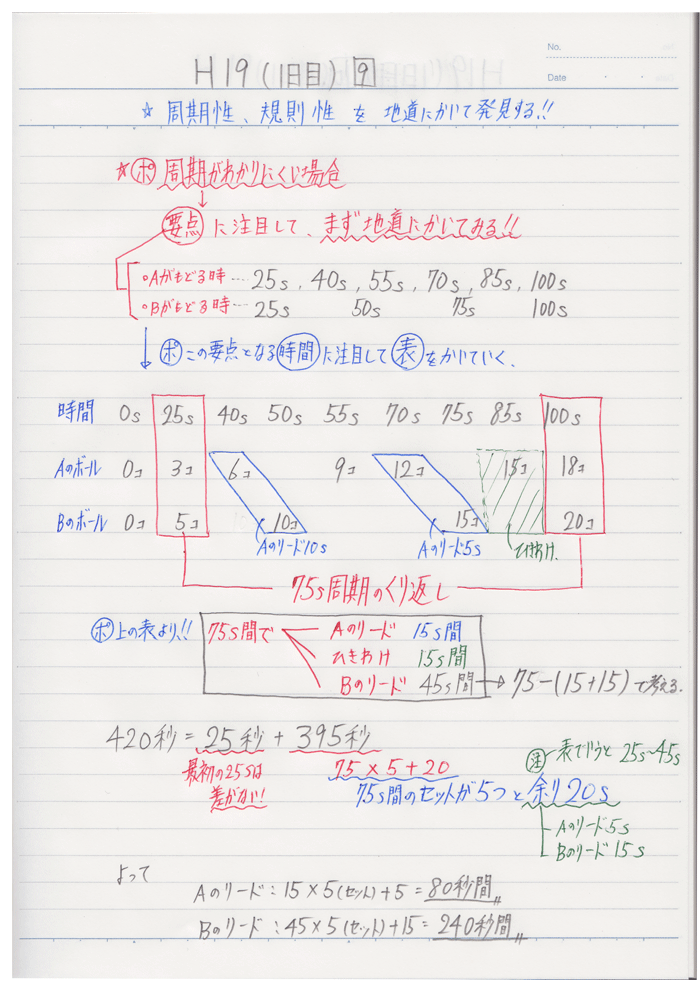 No.
Date
H19(1日目) 9
☆ 周期性、規則性 を 地道にかいて発見する!!
☆ポ 周期がわかりにくい場合
↓
要点 に注目して、まず地道にかいてみる!!
・Aがもどる時 … 25s, 40s, 55s, 70s, 85s, 100s
・Bがもどる時 … 25s 50s 75s 100s
↓ ポ この要点となる時間に注目して表をかいていく、
時間 0s 25s 40s 50s 55s 70s 75s 85s 100s
Aのボール 0コ 3コ 6コ 9コ 12コ 15コ 18コ
Bのボール 0コ 5コ 10コ 15コ 20コ
Aのリード10s Aのリード5s ひきわけ
75s周期のくり返し
ポ 上の表より、!! 75s間で Aのリード 15s間
ひきわけ 15s間
Bのリード 45s間 → 75-(15+15)で考える.
420秒=25秒+395秒
最初の25sは差がない! 75×5+20
75s間のセットが5つと余り20s
注 表でいうと25s~45s
Aのリード5s
Bのリード15s
よって
Aのリード:15×5(セット)+5=80秒間
Bのリード:45×5(セット)+15=240秒間